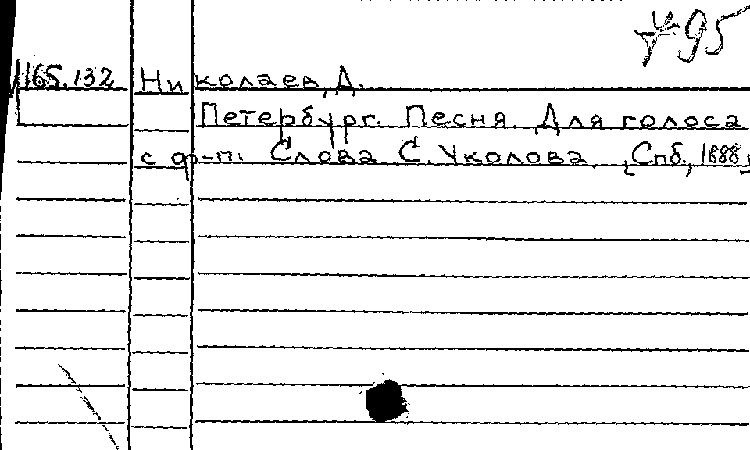 т 95
165.132 Николаев, Д.
Петербург. Песня. Для голоса
с ф-п. Слова С. Уколова. [Спб., 1888]